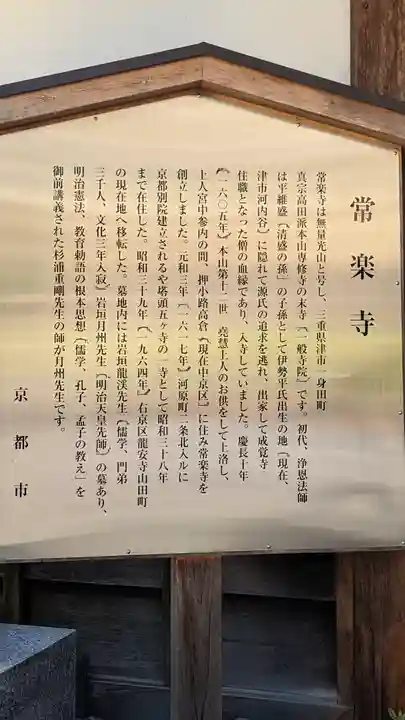 常楽寺
常楽寺は無量光山と号し、三重県津市一身田町
真宗高田派本山専修寺の末寺〔一般寺院〕です。初代、浄恩法師
は平維盛〔清盛の孫〕の子孫として伊勢平氏出生の地〔現在、
津市河内谷〕に隠れて源氏の追求を逃れ、出家して成覚寺
住職となった僧の血縁であり、入寺していました。慶長十年
〔一六〇五年〕本山第十二世 堯慧上人のお供をして上洛し、
上人宮中参内の間、押小路高倉〔現在中京区〕に住み常楽寺を
創立しました。元和三年〔一六一七年〕河原町二条北入ルに
京都別院建立されるや塔頭五ヶ寺の一寺として昭和三十八年
まで在住した。昭和三十九年〔一九六四年〕右京区龍安寺山田町
の現在地へ移転した。墓地内には岩垣龍渓先生〔儒学、門弟
三千人、文化三年入寂〕岩垣月州先生〔明治天皇先師〕の墓あり、
明治憲法、教育勅語の根本思想〔儒学、孔子、孟子の教え〕を
御前講義された杉浦重剛先生の師が月州先生です。
京都市